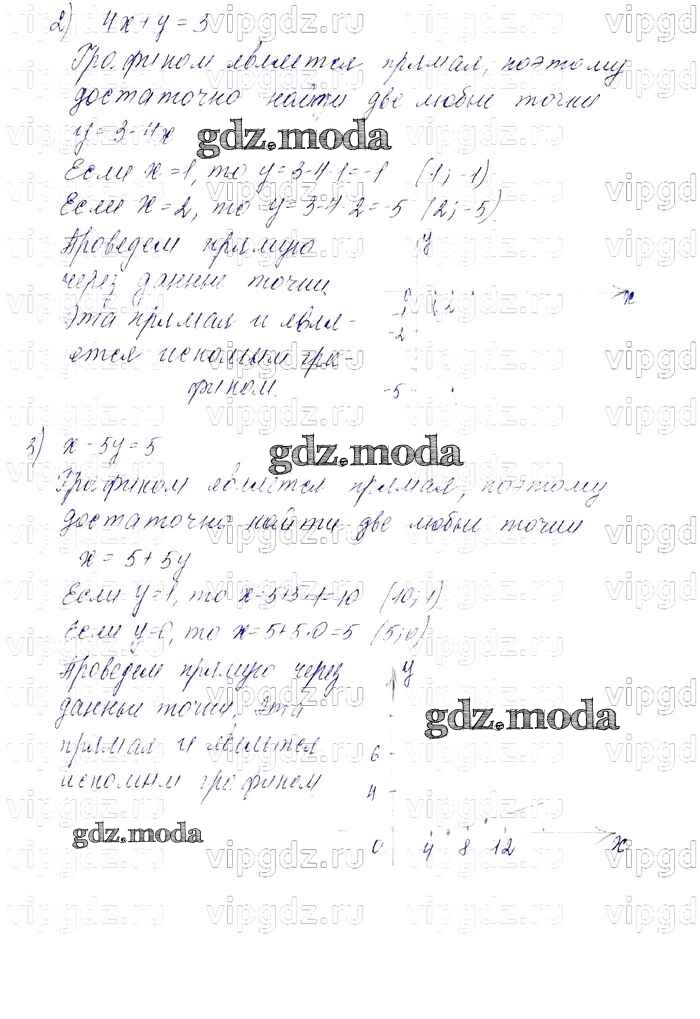 2) 4x + y = 3
Графиком является прямая, поэтому
достаточно найти две любые точки
y = 3 - 4x
gdz.moda
Если x = 1, то y = 3 - 4·1 = -1 (1; -1)
Если x = 2, то y = 3 - 4·2 = -5 (2; -5)
Проведем прямую
через данные точки.
Эта прямая и явля-
ется искомым гра-
фиком.
y
0 1 2 x
-1
-2
-5
3) x - 5y = 5
gdz.moda
Графиком является прямая, поэтому
достаточно найти две любые точки
x = 5 + 5y
Если y = 1, то x = 5 + 5·1 = 10 (10; 1)
Если y = 0, то x = 5 + 5·0 = 5 (5; 0)
Проведем прямую через
данные точки. Эта
прямая и является
искомым графиком
y
gdz.moda
6
4
0 4 8 12 x
gdz.moda
vipgdz.ru